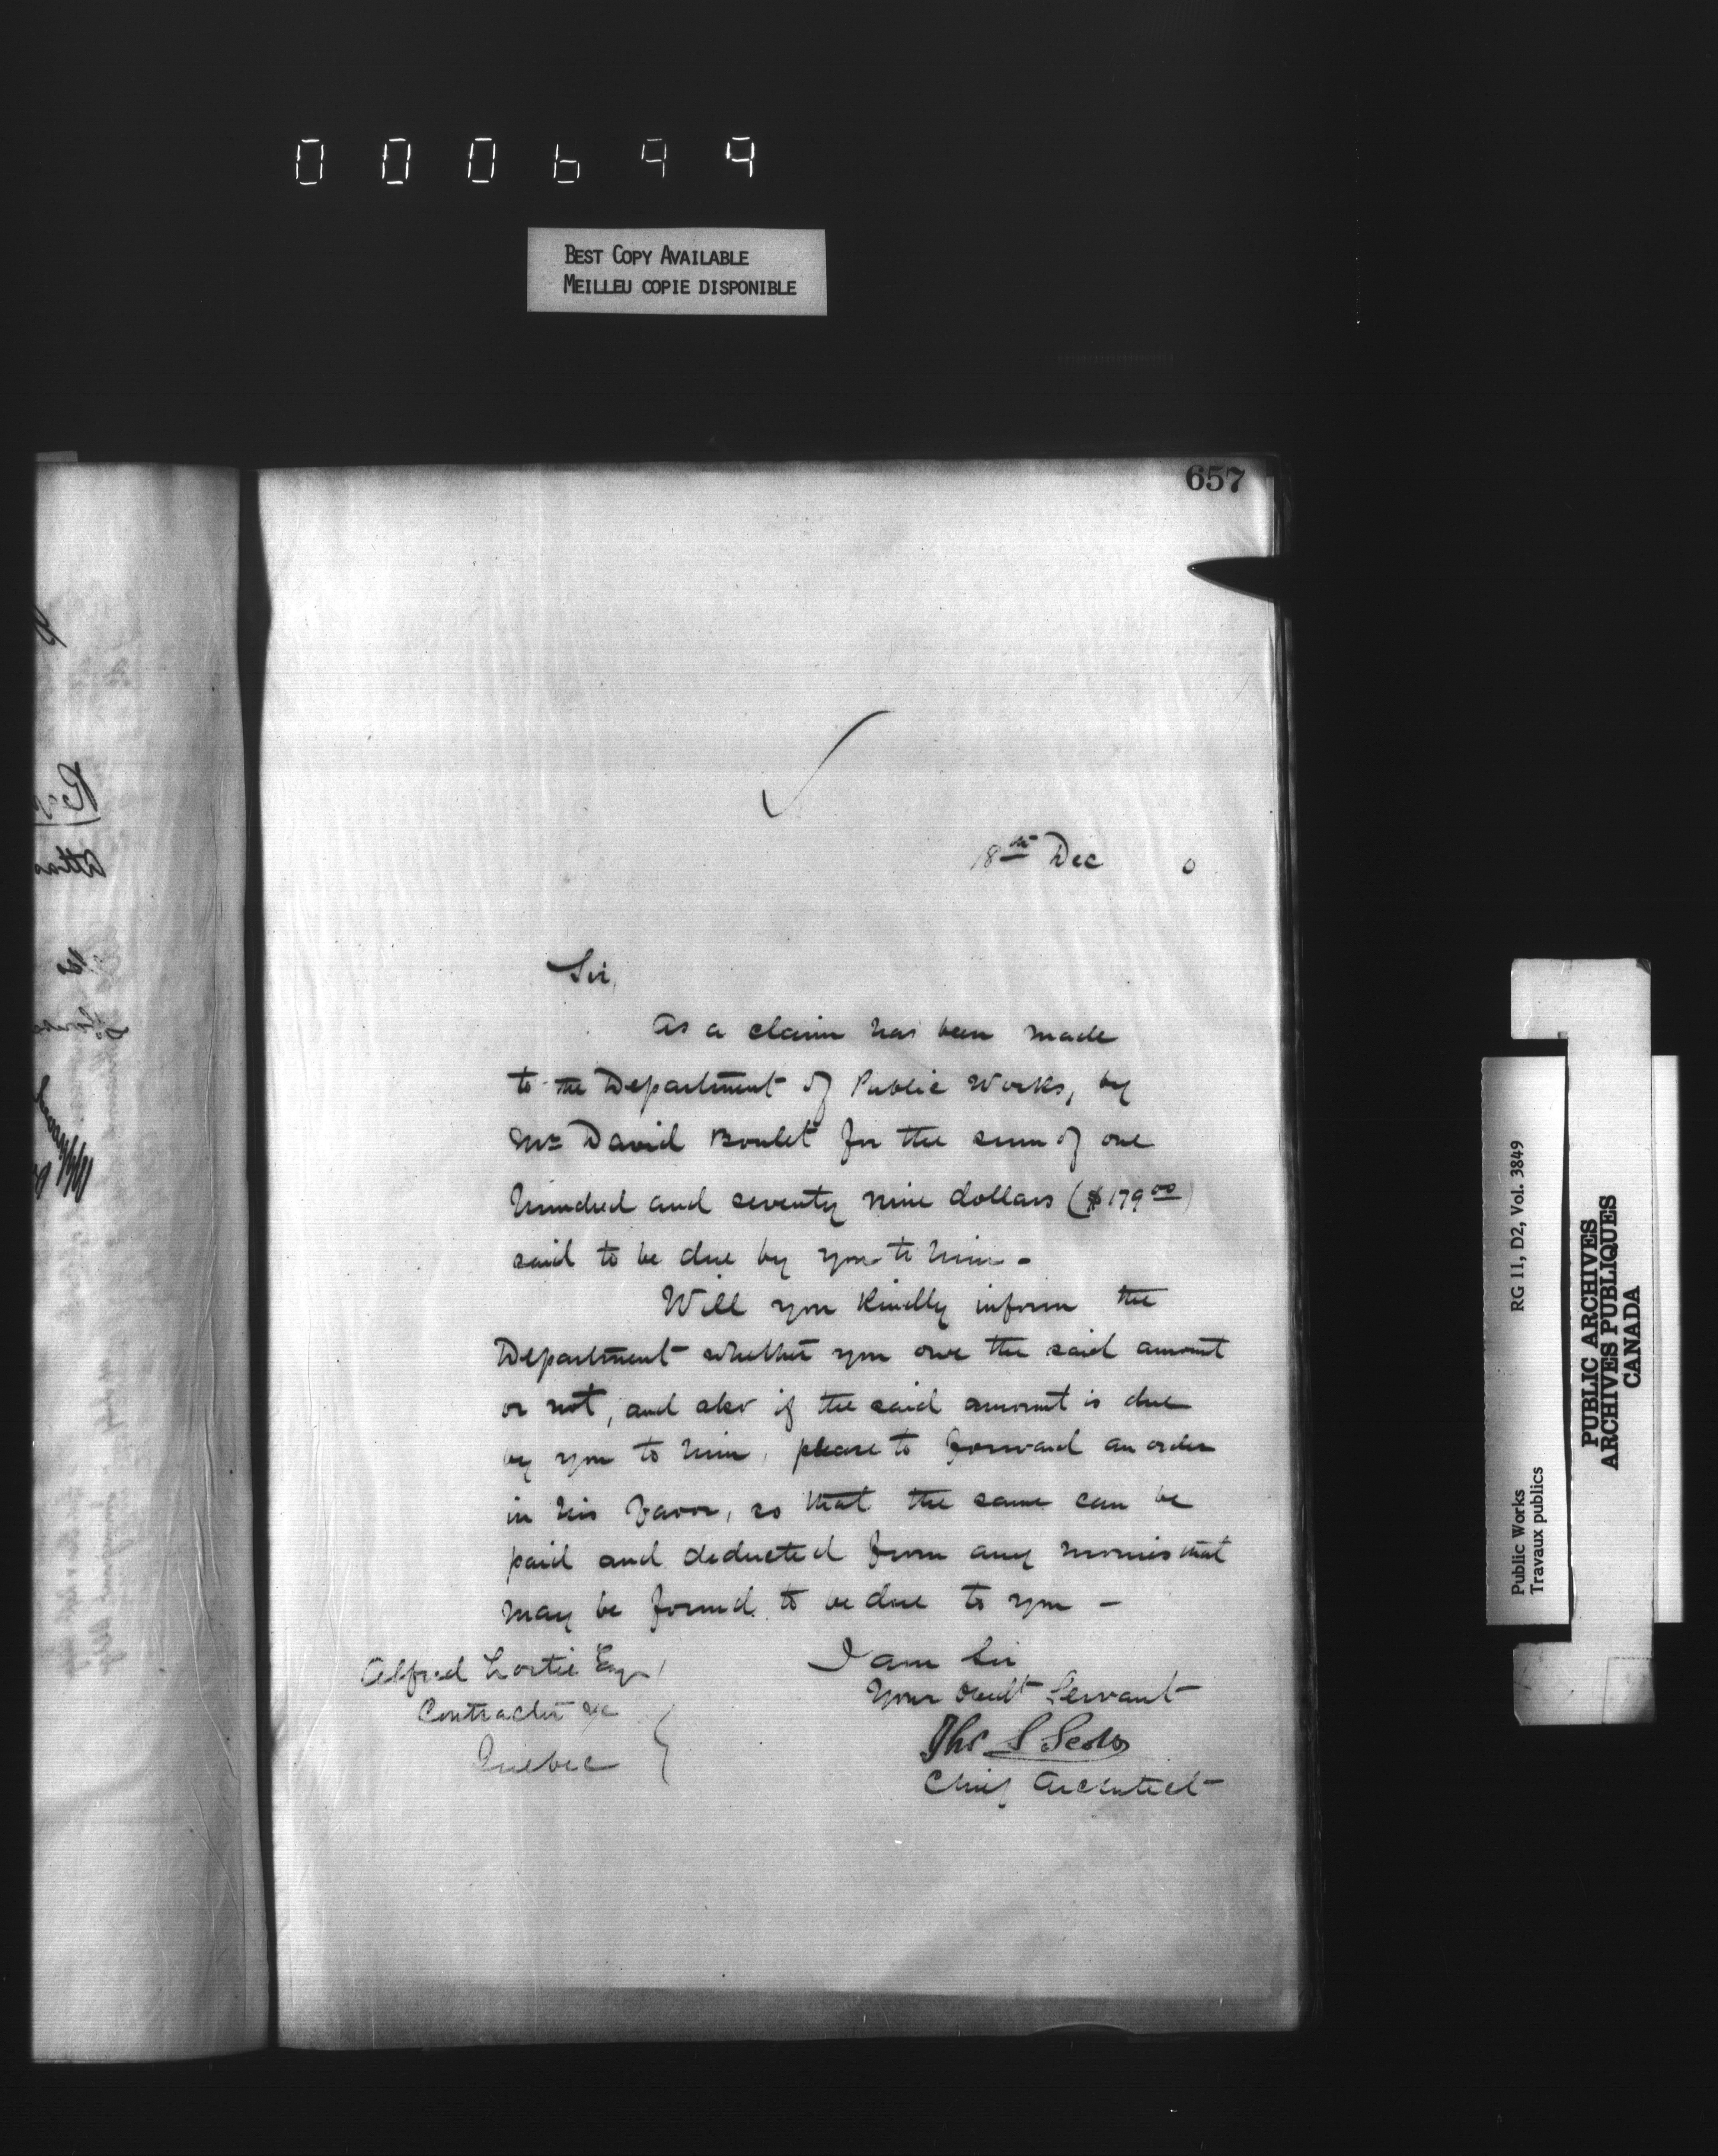 000699
BEST COPY AVAILABLE
MEILLEU COPIE DISPONIBLE
657
18th Dec 0
Sir,
As a claim has been made
to the Department of Public Works, by
Mr David Boulet for the sum of one
hundred and seventy nine dollars ($179 00)
said to be due by you to him -
Will you kindly inform the
Department whether you owe the said amount
or not, and also if the said amount is due
by you to him, please to forward an order
in his favor, so that the same can be
paid and deducted from any monies that
may be found to be due to you -
I am Sir
Your Obedt Servant
Thos S Scott
Chief Architect
Alfred Lortie Esq,
Contractor &c
Quebec
Public Works
Travaux publics
RG 11, D2, Vol. 3849
PUBLIC ARCHIVES
ARCHIVES PUBLIQUES
CANADA